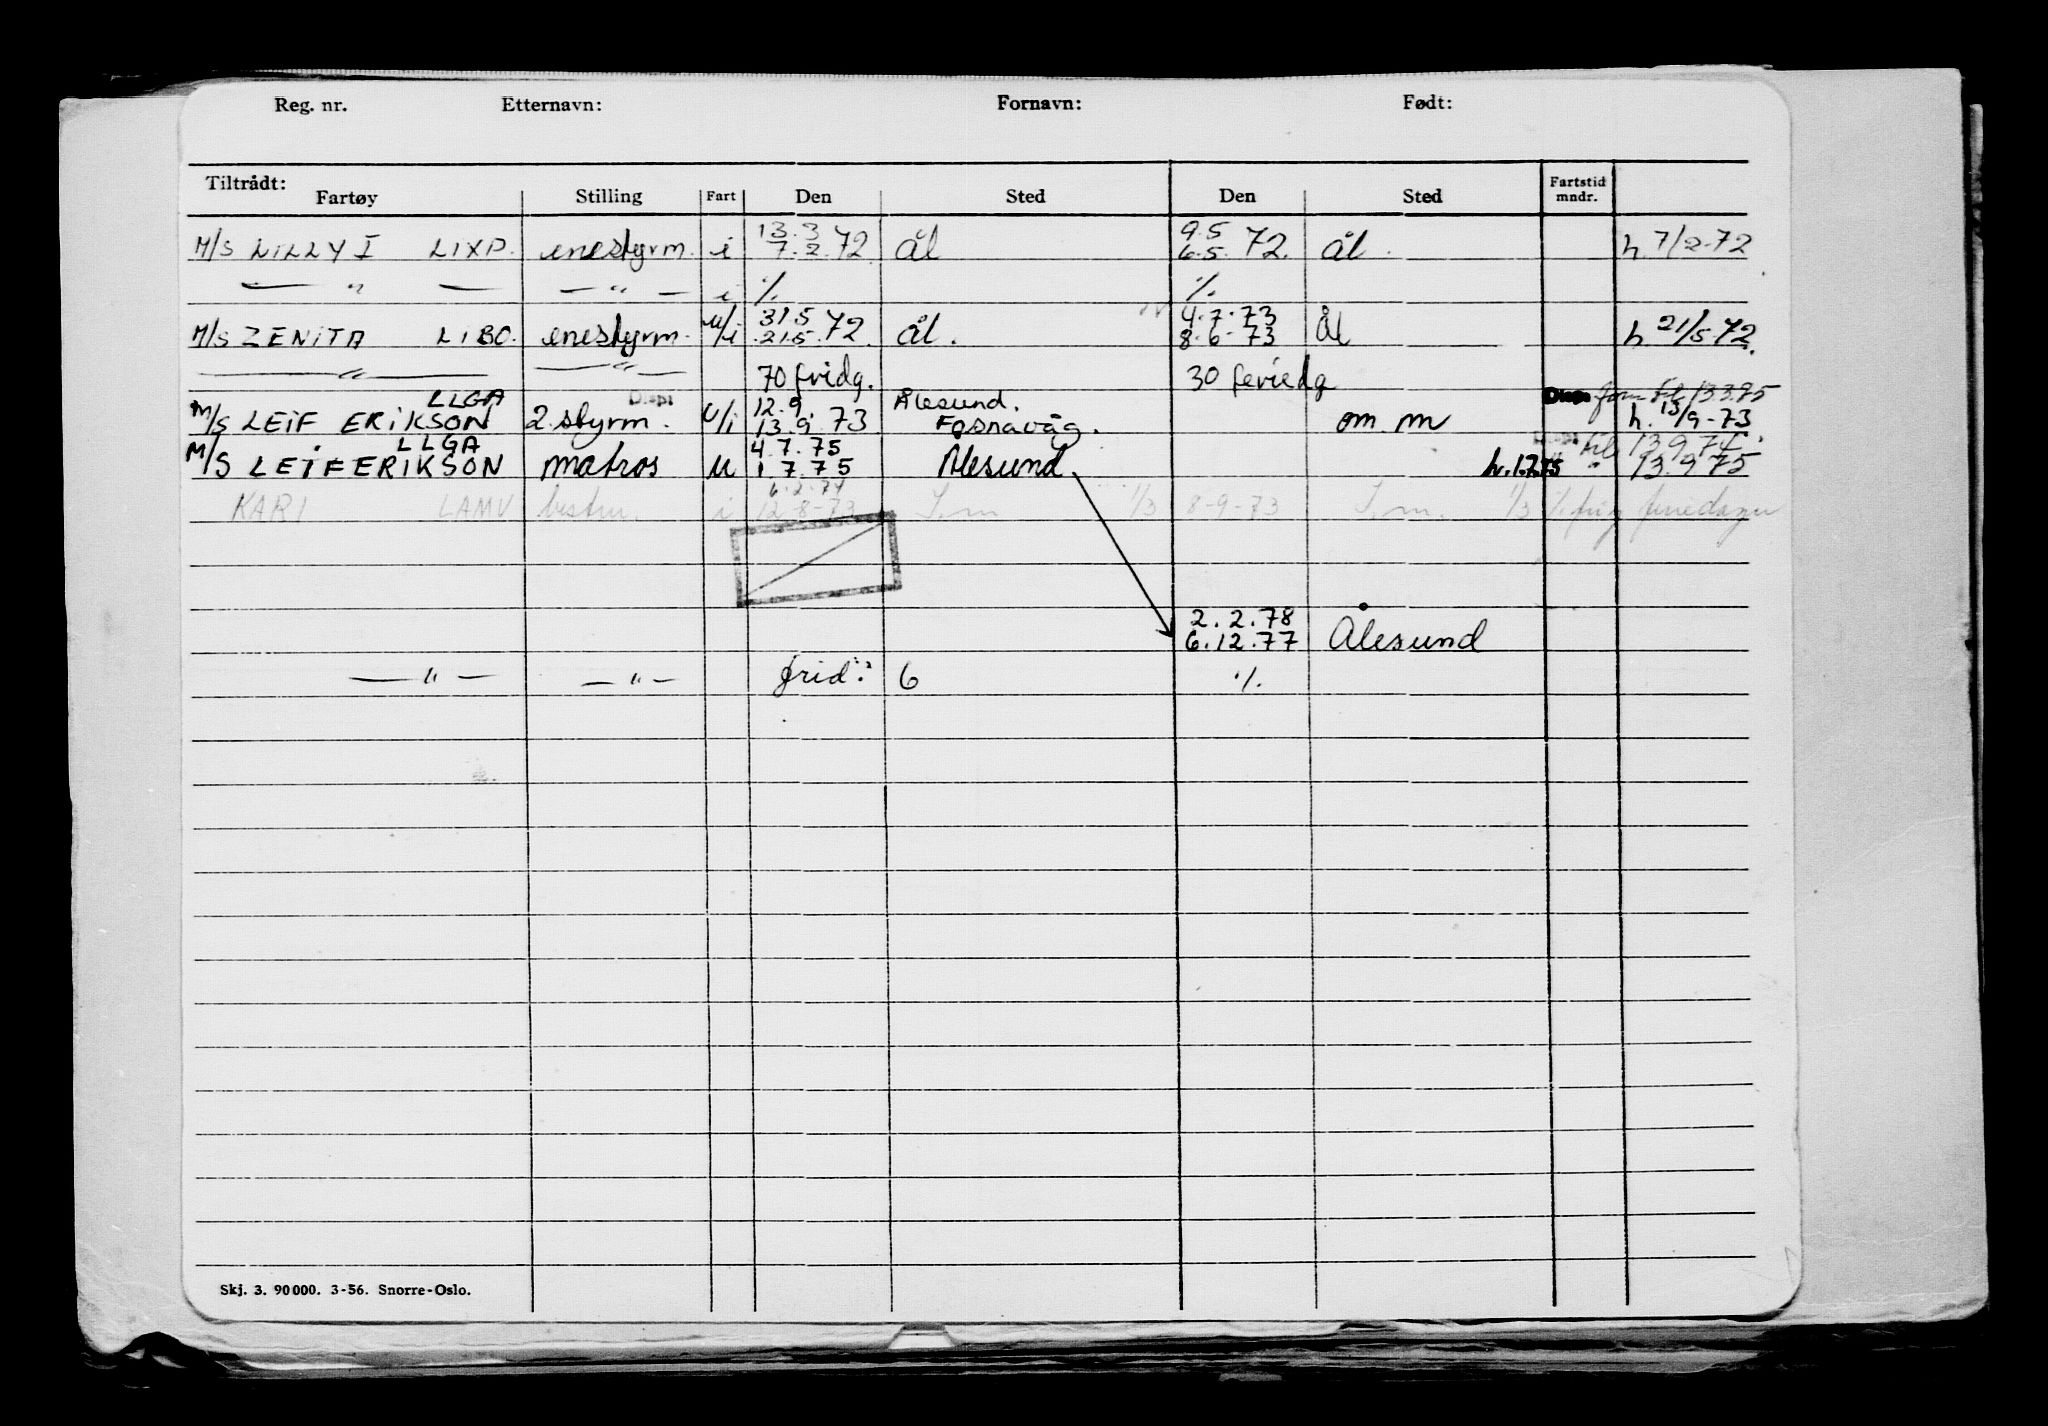 Reg. nr. Etternavn: Fornavn: Født:
Tiltrådt:
Fartøy Stilling Fart Den Sted Den Sted Fartstid mndr.
M/S LILLY I LIXP. enestyrm. i 13.3 7.2.72 ål 9.5 6.5.72. ål. h. 7/2-72
— " — — " — i %. %.
M/S ZENITA LIBO. enestyrm. u/i 31.5 21.5.72. ål. 4.7.73 8.6-73 Ål h. 21/5 72.
— " — — " — 70 fridg. 30 feriedg
LLGA Disp 12.9. Ålesund. Disp 13.3.75
M/S LEIF ERIKSON 2. styrm. u/i 13.9.73 Fosnavåg. om. m h. 13/9-73
LLGA 4.7.75 til 13.9.74.
M/S LEIF ERIKSON matros u 1.7.75 Ålesund h.1.7.75 " 13.9.75
KARI LAMV bestm. i 6.2.74 12-8-73 S.m 1/3 8-9-73 S.m. 1/3
2.2.78
6.12.77 Ålesund
— " — — " — frid.: 6 %.
Skj. 3. 90 000. 3-56. Snorre-Oslo.